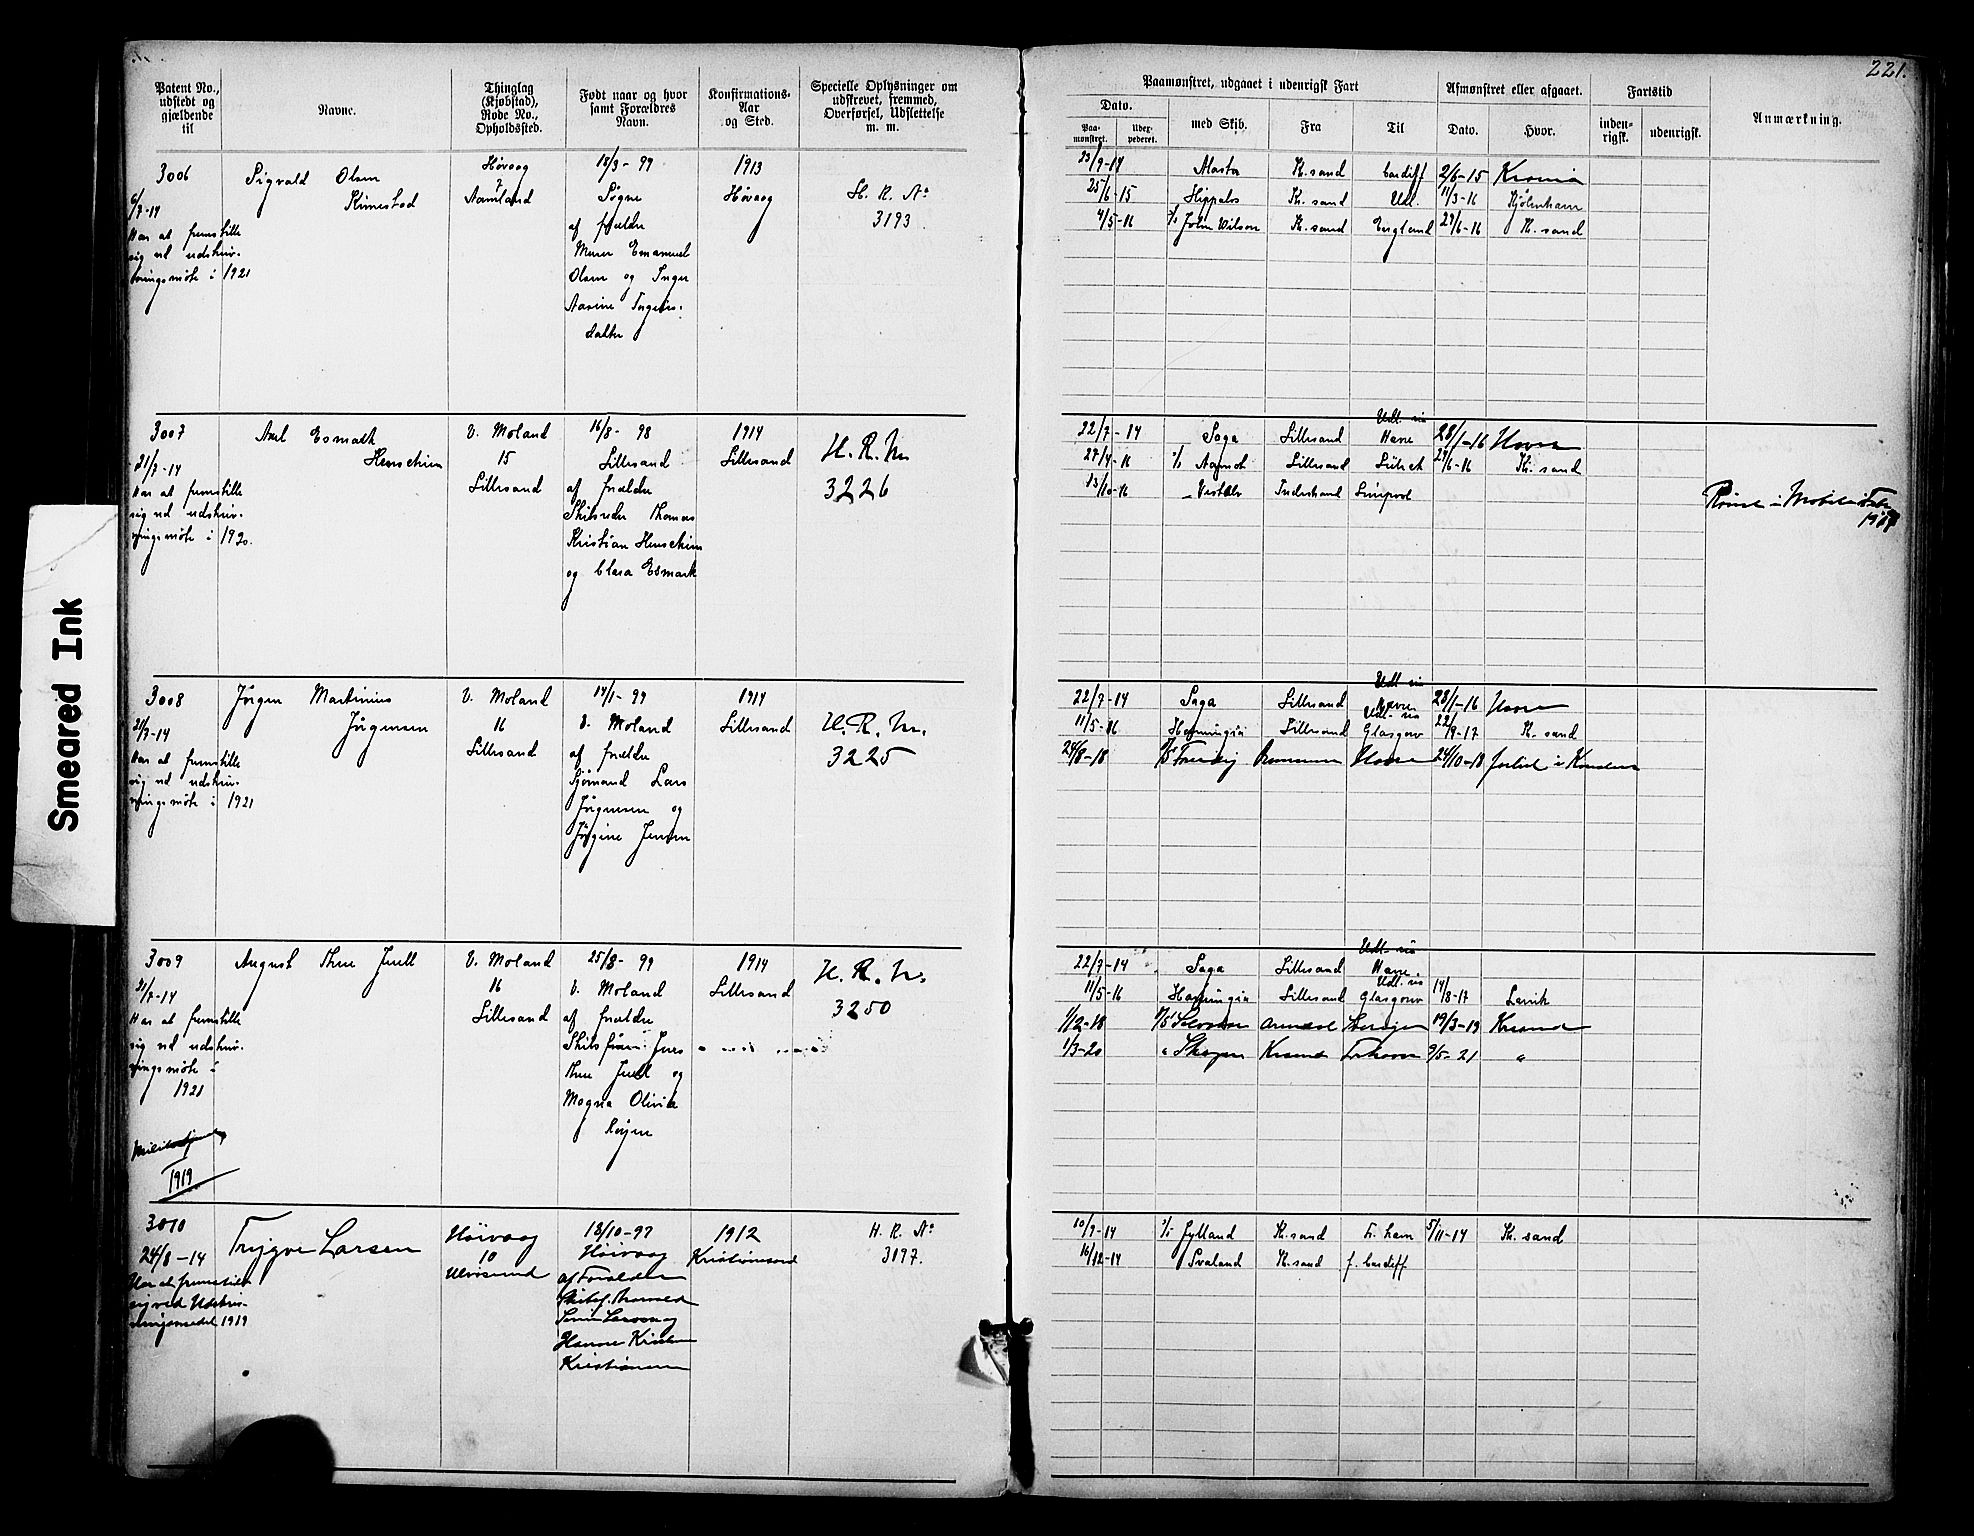 221.
Smeared Ink
Patent No., udstedt og gjældende til
Navne.
Thinglag (Kjøbstad), Rode No., Opholdssted.
Født naar og hvor samt Forældres Navn.
Konfirmations-Aar og Sted.
Specielle Oplysninger om udskrevet, fremmed, Overførsel, Udslettelse m. m.
Paamønstret, udgaaet i udenrigsk Fart
Dato.
Paa-mønstret.
Udex-pederet.
med Skib.
Fra
Til
Afmønstret eller afgaaet.
Dato.
Hvor.
Fartstid
inden-rigsk.
udenrigsk.
Anmærkning.
3006
6/7-14
Har at fremstille
sig ved udskriv-
ningsmöte i 1921
Sigvald Olsen
Rimestad
Høvaag
7
Aamland
18/3-99
Søgne
af forældre
Murer Emanuel
Olsen og Inger
Aasine
datter
1913
Høvaag
H. R. No
3193
23/7-14 Alasta K.sand Cardiff 2/6-15
25/6-15 Hippalos K.sand Udl. 11/3-16
4/5-16 John Wilson K.sand England 27/6-16 K.sand
3007
21/7-14
Har at fremstille
sig ved udskriv-
ningsmöte i 1920.
Axel Esmark
Henschien
V. Moland
15
Lillesand
16/8-98
Lillesand
af forældre
Skibsreder Thomas
Kristian Henschien
og Clara Esmark
1914
Lillesand
H. R. No.
3226
Udl. via
22/7-14 Saga Lillesand Havre 28/1-16
27/4-16 Lillesand 27/6-16 K.sand
13/10-16 Liverpool
Rømt i Mobile
3008
21/7-14
Har at fremstille
sig ved udskriv-
ningsmöte i 1921
Jörgen Martinius
Jörgensen
V. Moland
16
Lillesand
14/1-99
V. Moland
af forældre
Sjømand Lars
Jörgensen og
Jörgine Jensen
1914
Lillesand
H. R. No.
3225
Udl. via
22/7-14 Saga Lillesand Havre 28/1-16
Udl. via
11/5-16 Lillesand Glasgow 22/9-17 K.sand
24/8-18 24/10-18 forlist i
3009
21/7-14
Har at fremstille
sig ved udskriv-
ningsmöte i
1921
1919
August Thue Juell
V. Moland
16
Lillesand
25/8-99
V. Moland
af forældre
Skibsfører Jens
Thue Juell og
Magna Olivia
1914
Lillesand
H. R. No.
3250
Udl. via
22/7-14 Saga Lillesand Havre.
Udl. via
11/5-16 Lillesand Glasgow 14/8-17 Larvik
1/2-18 Arendal 19/3-19 Krsand
1/3-20 " Skagen Krsand 9/5-21 "
3010
24/8-14
Har at fremstille
sig ved Udskriv-
ningsmødet 1919
Trygve Larsen
Høivaag
10
Ulvøsund
18/10-97
Høivaag
af Forældre
Skibsf.
Larsen og
Hanne
Kristiansen
1912
Kristiansand
H. R. No
3197.
10/9-14 Jylland K.sand Fr. havn 5/11-14 K.sand
16/12-14 Svaland K.sand f. Cardiff